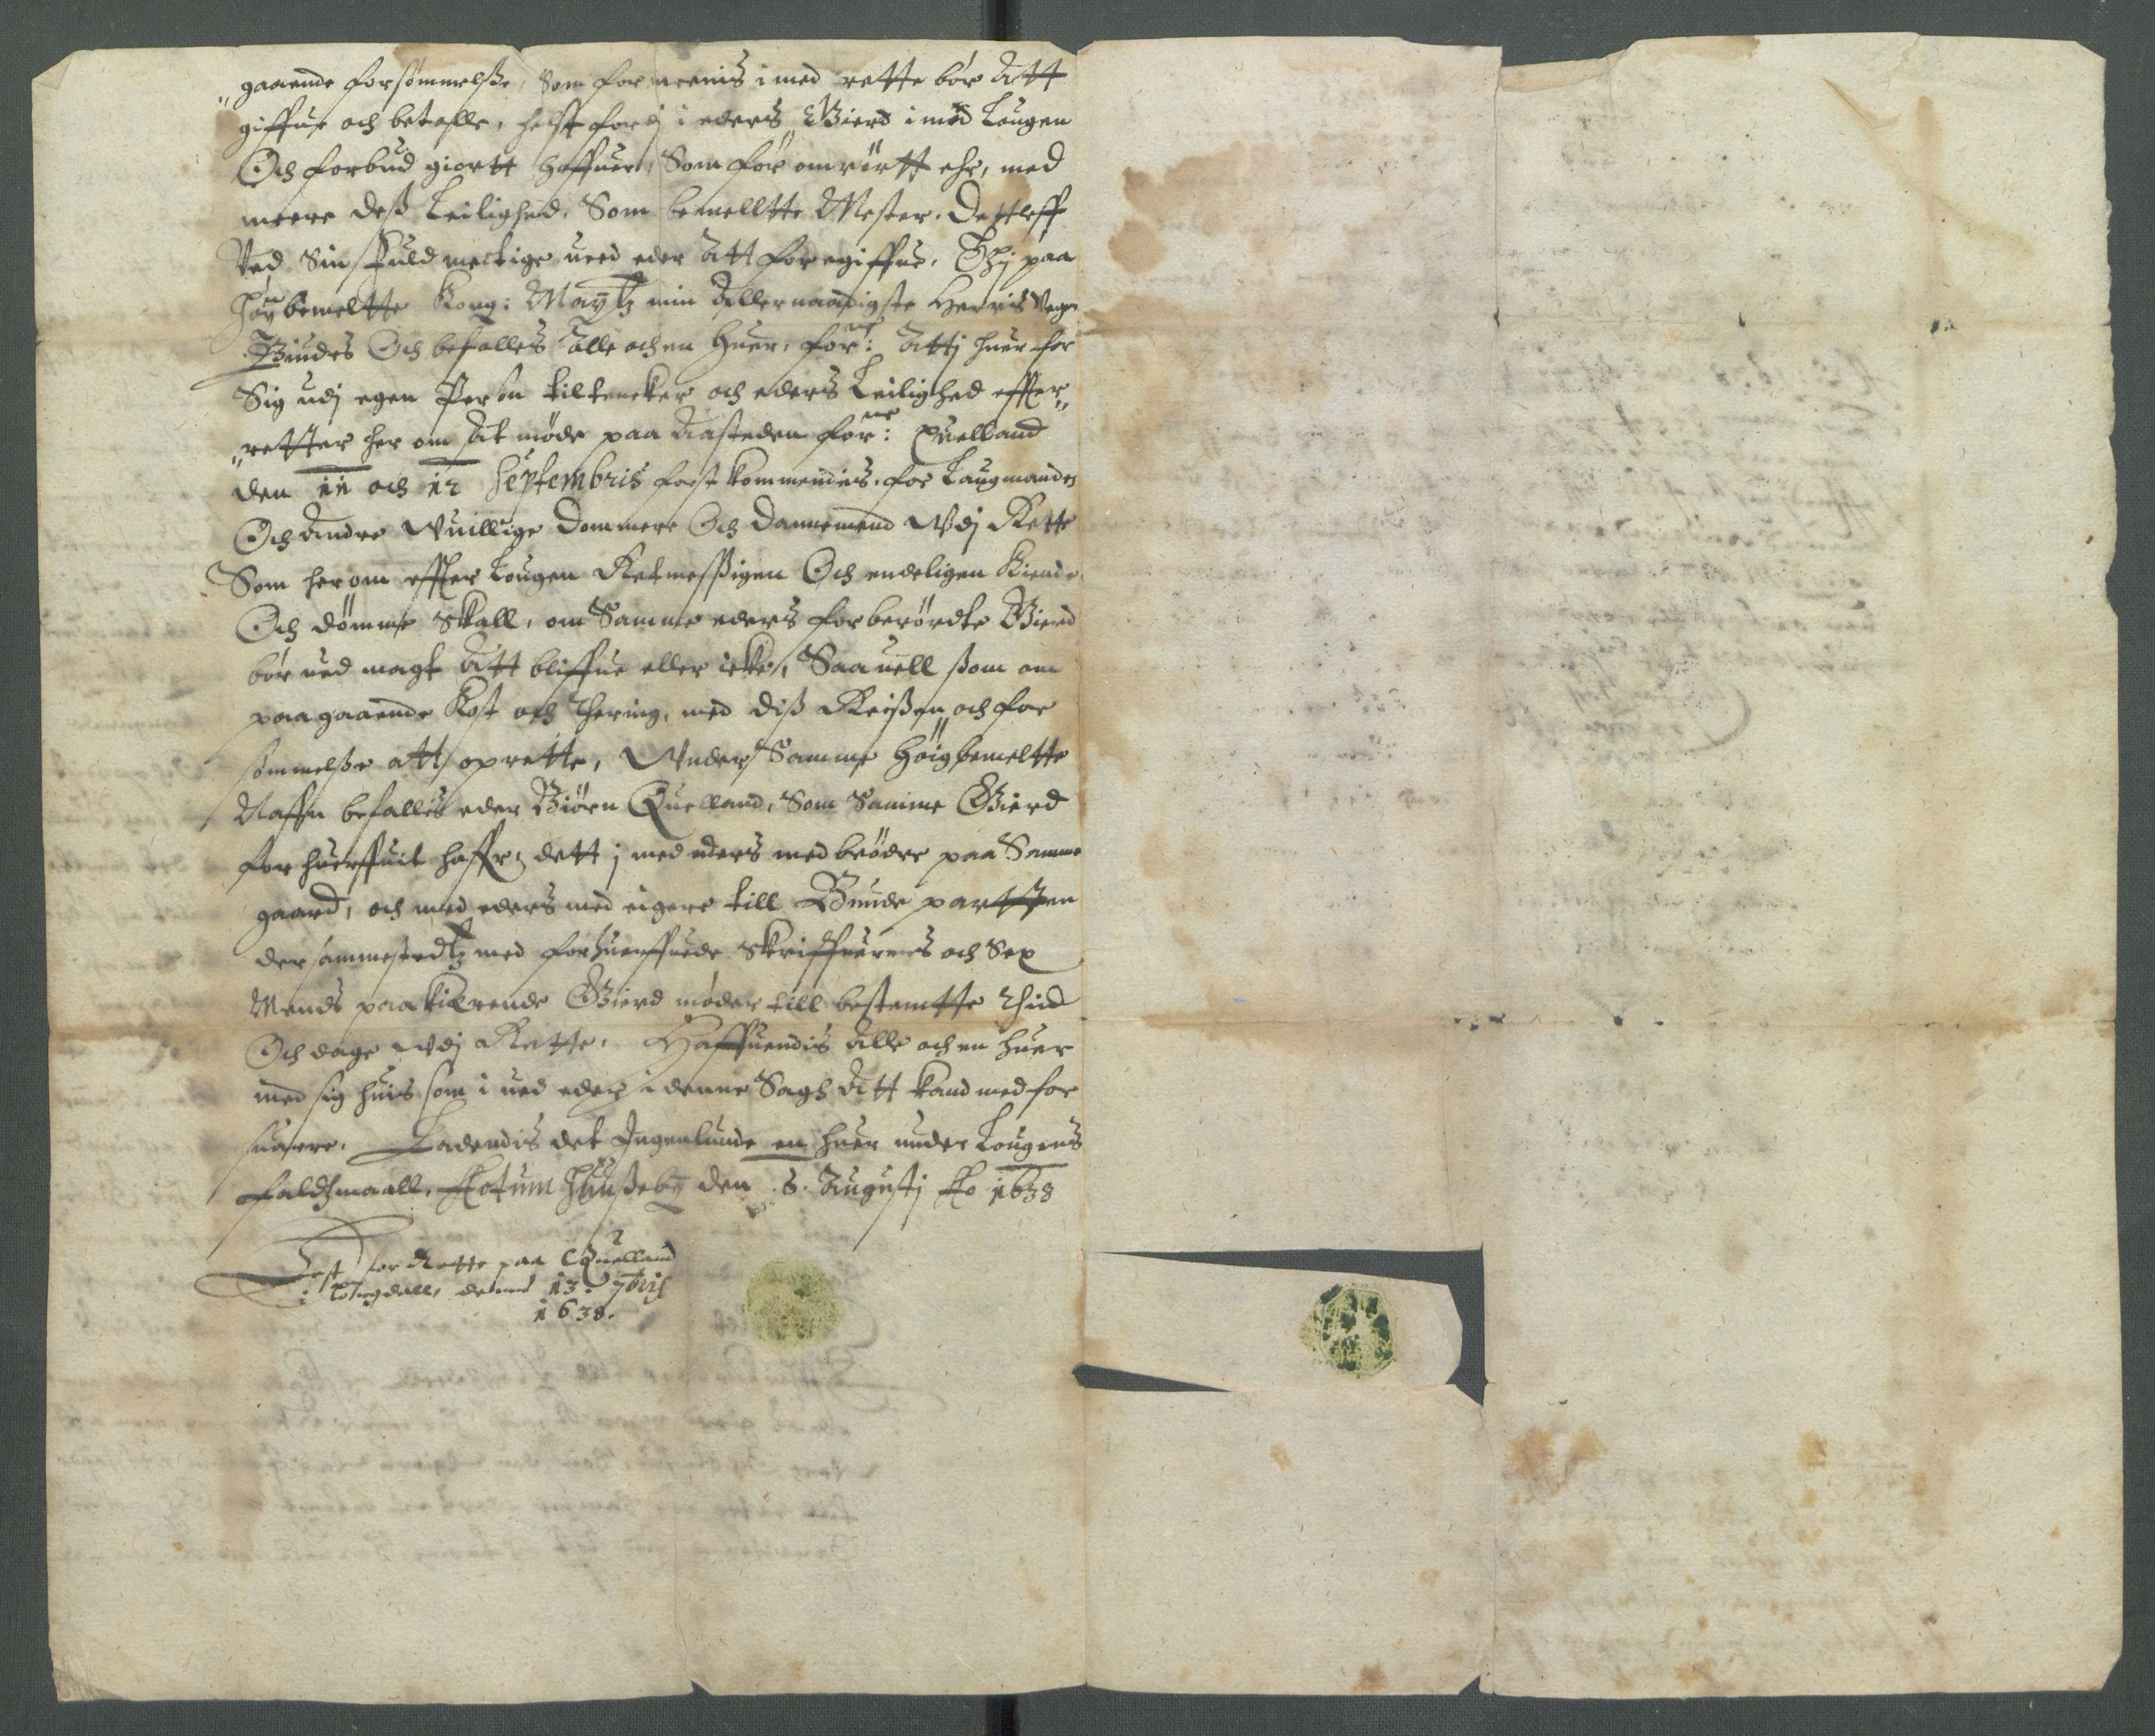 gaaende forsømmelsse, Som formeenis i med rette bør Att
giffue och betalle, helst fordj i eders Gierd i mod Lougen
Och forbud giortt haffuer, Som før om rørtt ehr, med
meere dess Leilighed, Som bemellte Mester Dettleff
Ved Sin fuldmectige ued eder Att foregiffue, Thj paa
Høybemeltte Kong: Maytz min Allernaadigste Herris Vegn
Biudes Och befalles Alle och en Huer, forne: Attj huer for
Sig udj egen Person tiltencker och eders Leilighed effter
retter her om At møde paa Aasteden forne: Quelland
den 11 och 12 Septembris først kommendis, for Laugmanden
Och Andre Wuillige Dommere Och Dannemend Vdj Rette
Som her om effter Lougen Retmessigen Och endeligen Kiende
Och dømme skall, om Samme eders forberørdte Gierd
bør ued magt Att bliffue eller icke, Saauell ssom om
paagaaende Kost och Thering, med diss Reissen och for
sømmelsse att oprette, Wnder Samme Høigbemeltte
Naffn befallis eder Biørn Quelland, Som Samme Gierd
forhuerffuit haffr, dett j med eders medbrødre paa Samme
gaard, och med eders med eigere till Bunde partten
der sammestedtz med forhuerffuede skriffuerens och Sex
Mends paakierende Gierd møder till bestemtte Thiid
Och dage Vdj Rette, Haffuendis Alle och en huer
med sig huis som i ued eder i denne Sagh Att kand med for
suare. Ladendis det Ingenlunde en huer under Lougens
faldsmaall, Actum Huusseby den 8. Augustj Ao 1638
Lest for Rette paa Quelland
i Lougdall, denn 13. 7bris
1638.